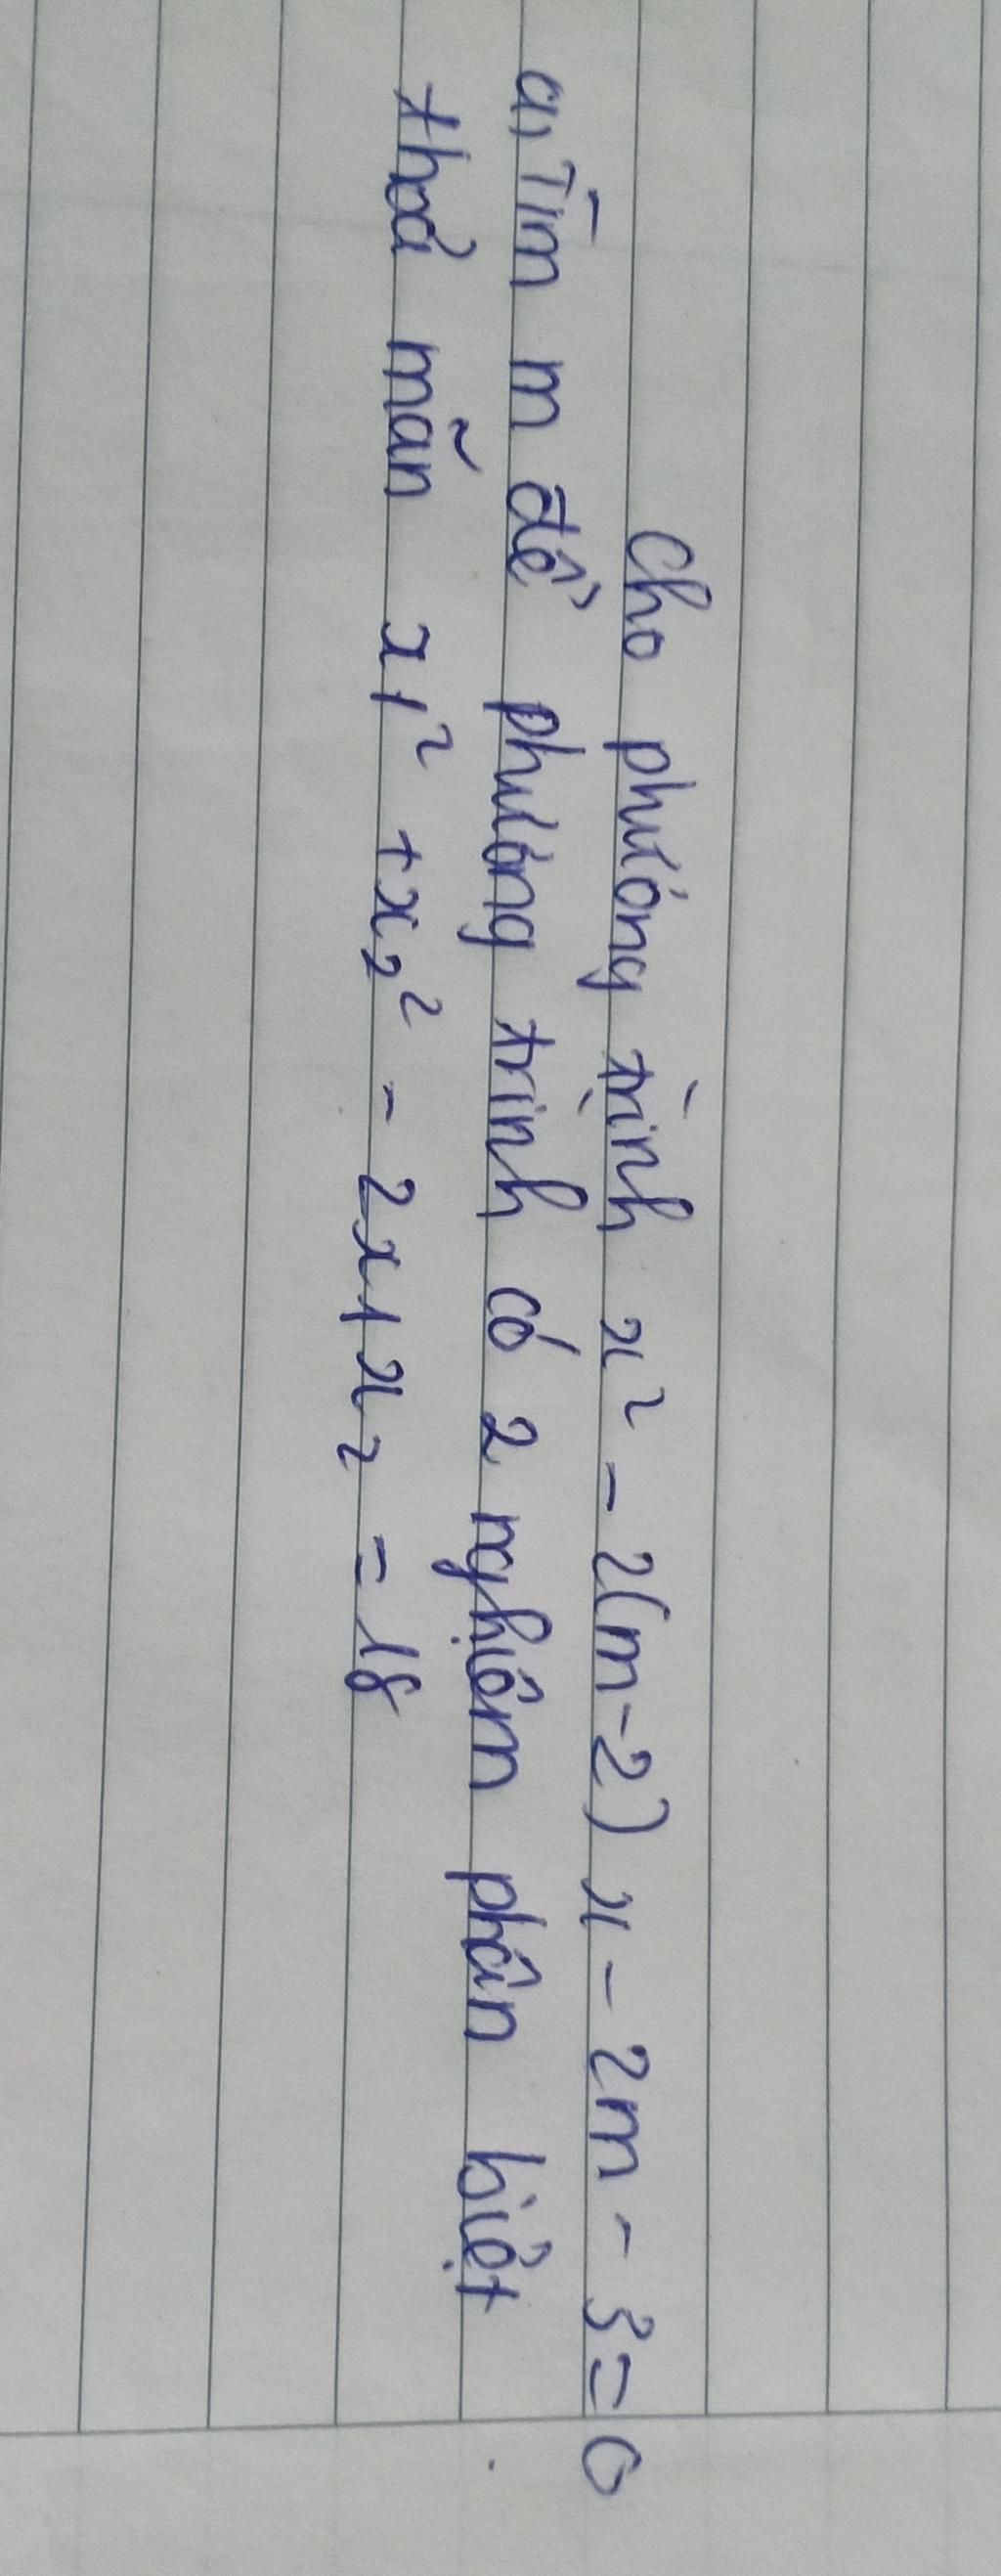 Cho phương trình x² - 2(m-2) x - 2m - 3 = 0
a, Tìm m để phương trình có 2 nghiệm phân biệt
thoả mãn x1² + x₂² - 2x1x₂ = 18